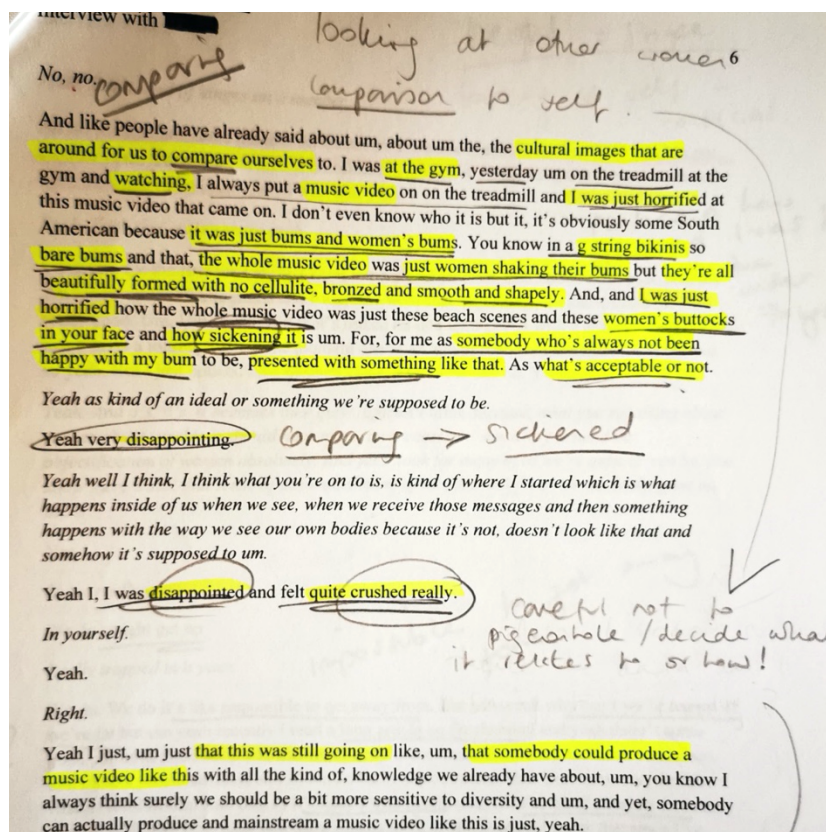 interview with
looking at other women 6
No, no. comparing
comparison to self.
And like people have already said about um, about um the, the cultural images that are
around for us to compare ourselves to. I was at the gym, yesterday um on the treadmill at the
gym and watching, I always put a music video on on the treadmill and I was just horrified at
this music video that came on. I don't even know who it is but it, it's obviously some South
American because it was just bums and women's bums. You know in a g string bikinis so
bare bums and that, the whole music video was just women shaking their bums but they're all
beautifully formed with no cellulite, bronzed and smooth and shapely. And, and I was just
horrified how the whole music video was just these beach scenes and these women's buttocks
in your face and how sickening it is um. For, for me as somebody who's always not been
happy with my bum to be, presented with something like that. As what's acceptable or not.
Yeah as kind of an ideal or something we're supposed to be.
Yeah very disappointing. comparing → sickened
Yeah well I think, I think what you're on to is, is kind of where I started which is what
happens inside of us when we see, when we receive those messages and then something
happens with the way we see our own bodies because it's not, doesn't look like that and
somehow it's supposed to um.
Yeah I, I was disappointed and felt quite crushed really.
careful not to
In yourself.
pigeonhole / decide wha
it relates to or how!
Yeah.
Right.
Yeah I just, um just that this was still going on like, um, that somebody could produce a
music video like this with all the kind of, knowledge we already have about, um, you know I
always think surely we should be a bit more sensitive to diversity and um, and yet, somebody
can actually produce and mainstream a music video like this is just, yeah.